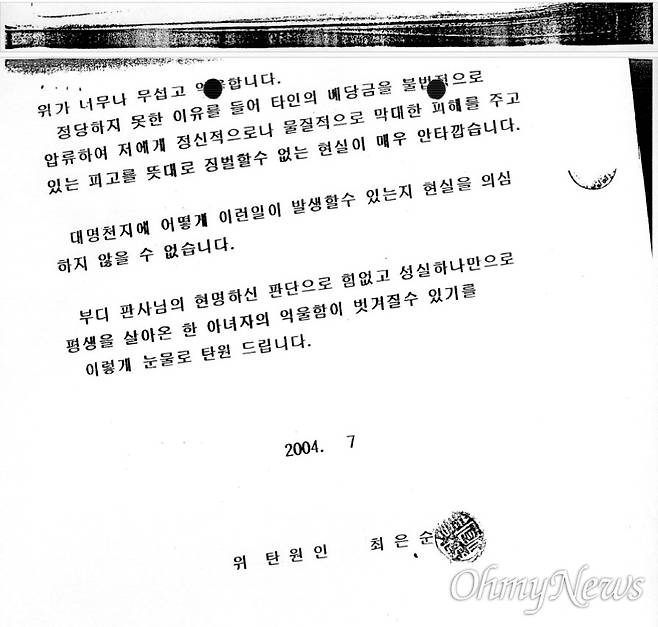 위가 너무나 무섭고 억울합니다.
정당하지 못한 이유를 들어 타인의 배당금을 불법적으로
압류하여 저에게 정신적으로나 물질적으로 막대한 피해를 주고
있는 피고를 뜻대로 징벌할수 없는 현실이 매우 안타깝습니다.
대명천지에 어떻게 이런일이 발생할수 있는지 현실을 의심
하지 않을 수 없습니다.
부디 판사님의 현명하신 판단으로 힘없고 성실하나만으로
평생을 살아온 한 아녀자의 억울함이 벗겨질수 있기를
이렇개 눈물로 탄원 드립니다.
2004. 7
위 탄 원 인 최 은 순
OhmyNews